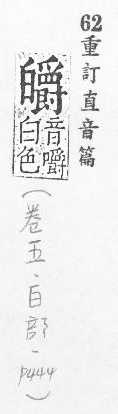 62重訂直音篇
皭
音嚼
白色
(卷五·白部·P444)